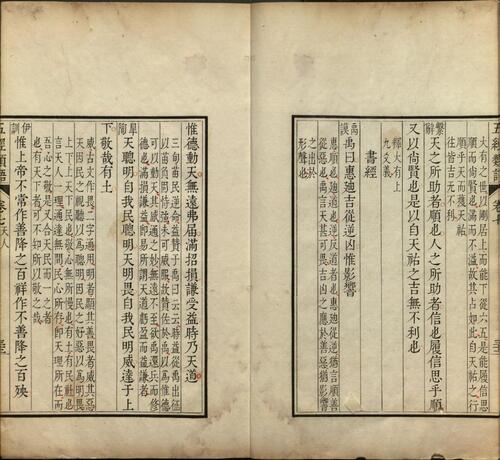 五經類語
卷七
大有之世以剛居上而能下從六五是能履信思
順而尚賢也滿而不溢故其占如此自天祐之行
順乎天而獲天祐故所
往皆吉无不利
繫辭
天之所助者順也人之所助者信也履信思乎順
又以尚賢也是以自天祐之吉無不利也
釋大有上
九爻義
書經
禹謨
禹曰惠迪吉從逆凶惟影響
惠順也迪道也逆反道者也惠迪從逆猶言順善
從惡也禹言天道可畏吉凶之應於善惡猶影響
之出於
形聲也
惟德動天無遠弗屆滿招損謙受益時乃天道
三旬苗民逆命益贊于禹曰云云時益從禹出征
以苗負固恃強未可威服故贊佐於禹以為惟德
可以動天其感通之妙無遠不至欲禹還兵而修
德也滿損謙益即易所謂天道虧盈而益謙者
皋陶
天聰明自我民聰明天明畏自我民明威達于上
下敬哉有土
威古文作畏二字通用明者顯其善畏者威其惡
天因民之視聽以為聰明因民之好惡以為明畏
上下上天下民也敬心無所慢也有土有民社也
言天人一理通達無間民心所存即天理所在而
吾心之敬是又合天民而一之者
也有天下者可不知所以敬之哉
伊訓
惟上帝不常作善降之百祥作不善降之百殃
五經類語
卷之
天人